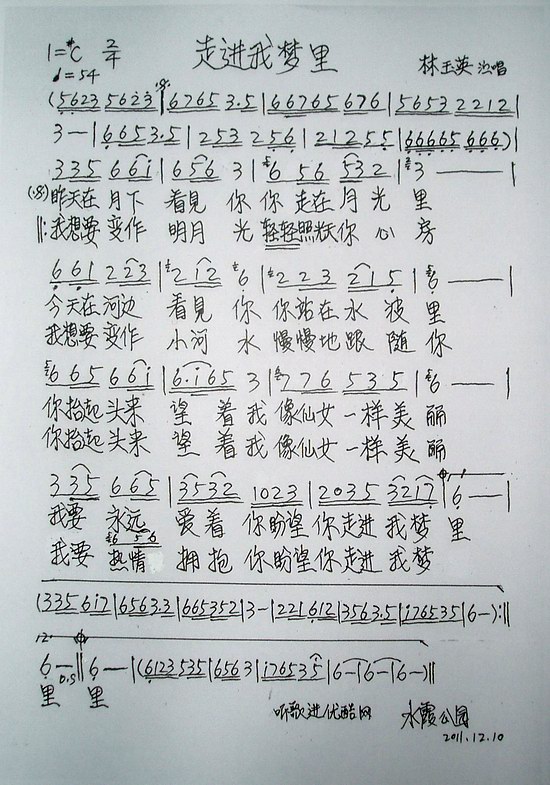 1=#C 2/4 走进我梦里 林玉英 演唱
♩=54
(5623 5623|6765 3.5|66765 676|5653 2212|
3—|6653.5|253 256|21255|66665 666)|
335 661|656 3|6 56 532|3—|
昨天在 月下 看見 你 你 走在 月 光 里
我想要 变作 明月 光 轻轻照 你 心 房
661 223|212 6|223 215|6—|
今天在 河边 看見 你 你站在 水 波 里
我想要 变作 小河 水 慢慢地 跟 随 你
665 661|6.165 3|776 535|6—|
你抬起 头来 望 着 我 像仙女 一样 美 丽
你抬起 头来 望 着 我 像仙女 一样 美 丽
335 665|3532 1023|2035 3217|6—|
我要 永远 爱着 你盼望 你走进 我梦 里
6 5 6
我要 热情 拥抱 你盼望 你走进 我梦
(335 617|6563.2|665352|3—|221612|3563.5|176535|6—):||
12.
6—||6—|(6123535|6563|176535|6—|6—|6—)||
0.5
里 里
听歌进优酷网 水霞公园
2011.12.10